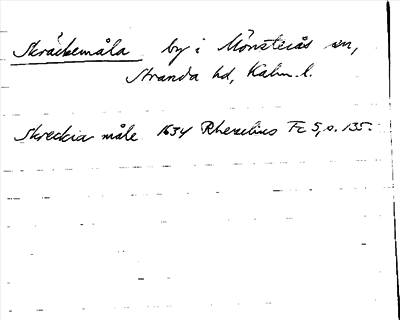 Skräckemåla by i Mönsterås sn,
Stranda hd, Kalm. l.
Skreckia måle 1634 Rhezelius Fc 5, s. 135.